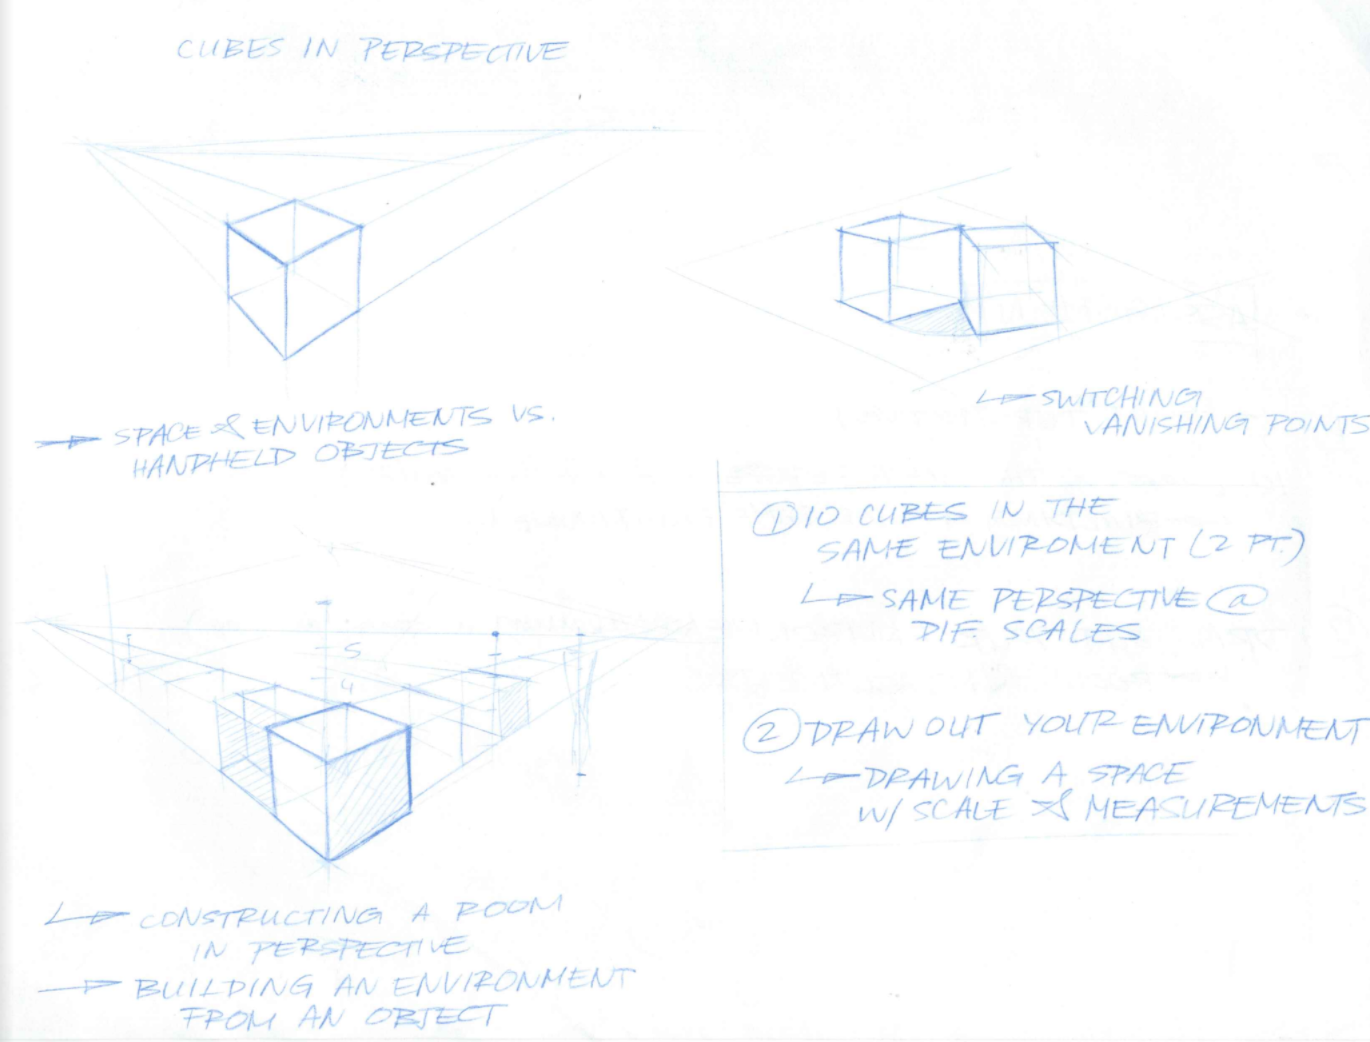 CUBES IN PERSPECTIVE
SPACE & ENVIRONMENTS VS.
HANDHELD OBJECTS
SWITCHING
VANISHING POINTS
5
4
CONSTRUCTING A ROOM
IN PERSPECTIVE
BUILDING AN ENVIRONMENT
FROM AN OBJECT
① 10 CUBES IN THE
SAME ENVIROMENT (2 PT.)
SAME PERSPECTIVE @
DIF. SCALES
② DRAW OUT YOUR ENVIRONMENT
DRAWING A SPACE
W/ SCALE & MEASUREMENTS